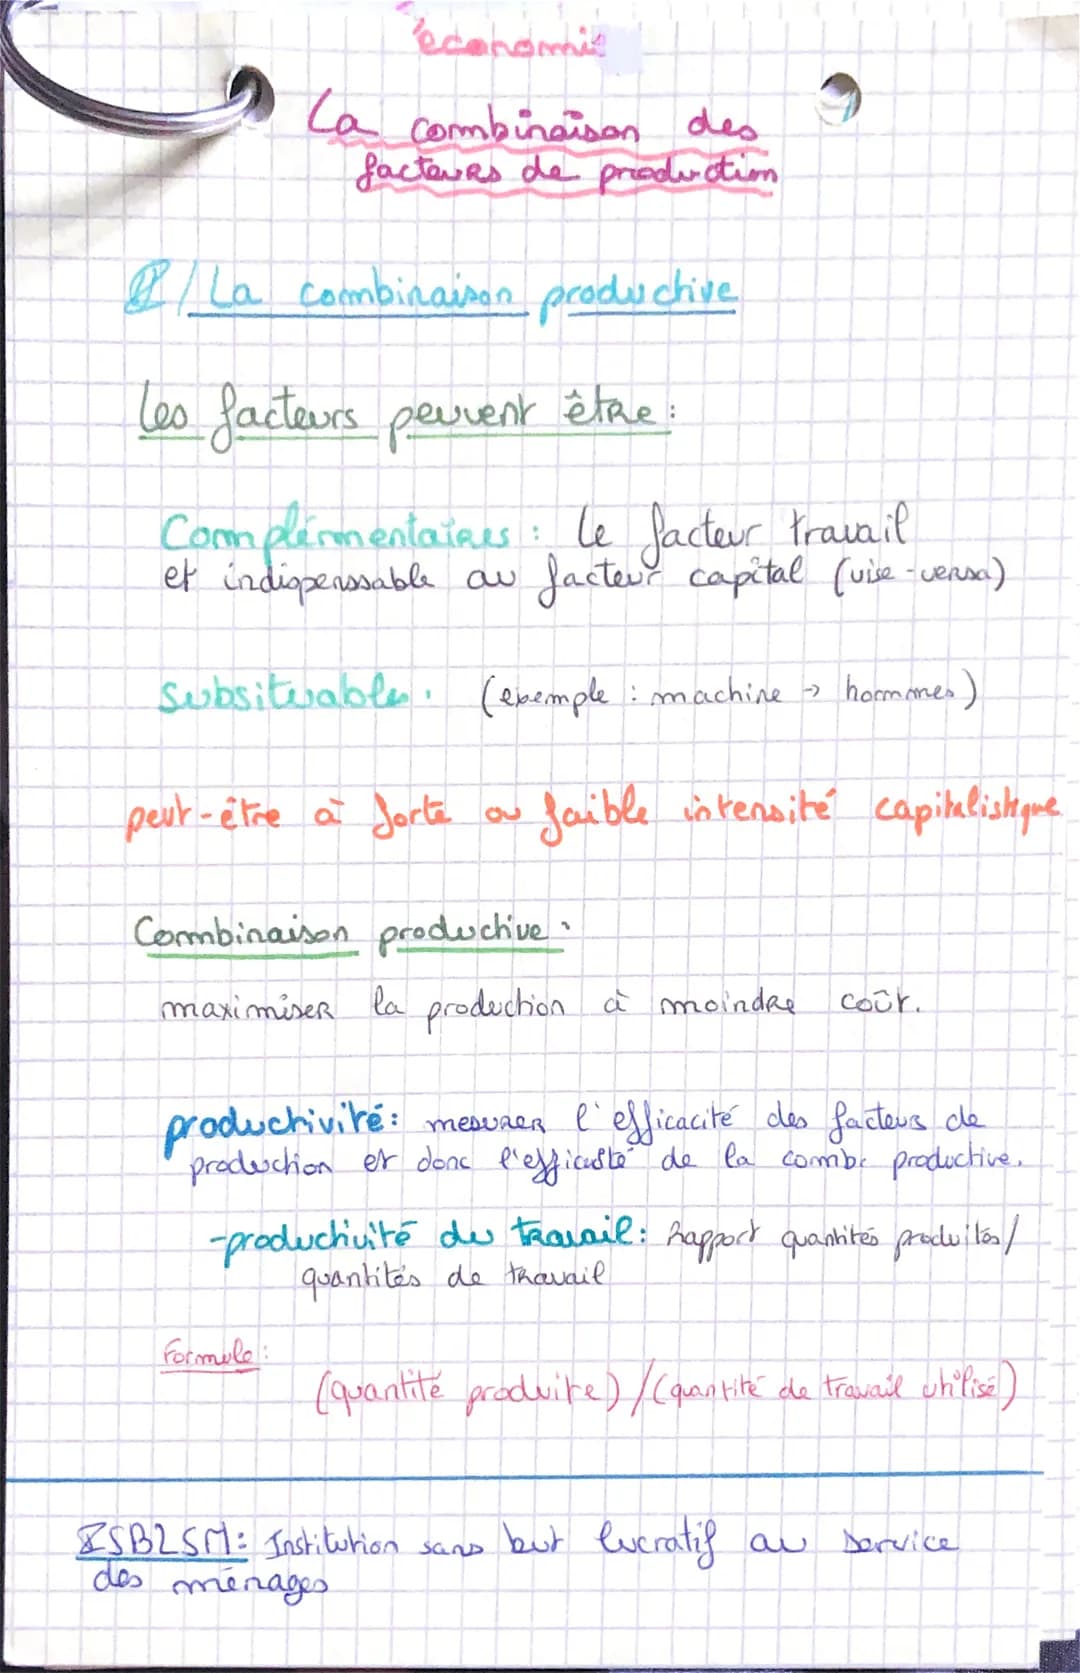 économie
La combinaison des
facteurs de production
I/ La combinaison productive
Les facteurs peuvent être :
Complémentaires : le facteur travail
et indispenssable au facteur capital (vise-versa)
Subsituables : (exemple : machine → hommes)
peut-être à forte ou faible intensité capitalistique
Combinaison productive :
maximiser la production à moindre coût.
productivité : mesurer l'efficacité des facteurs de
production et donc l'efficasté de la comb. productive.
-productivité du travail : Rapport quantités produites/
quantités de travail
Formule :
(quantité produite) / (quantité de travail utilisé)
ISBLSM : Institution sans but lucratif au service
des ménages